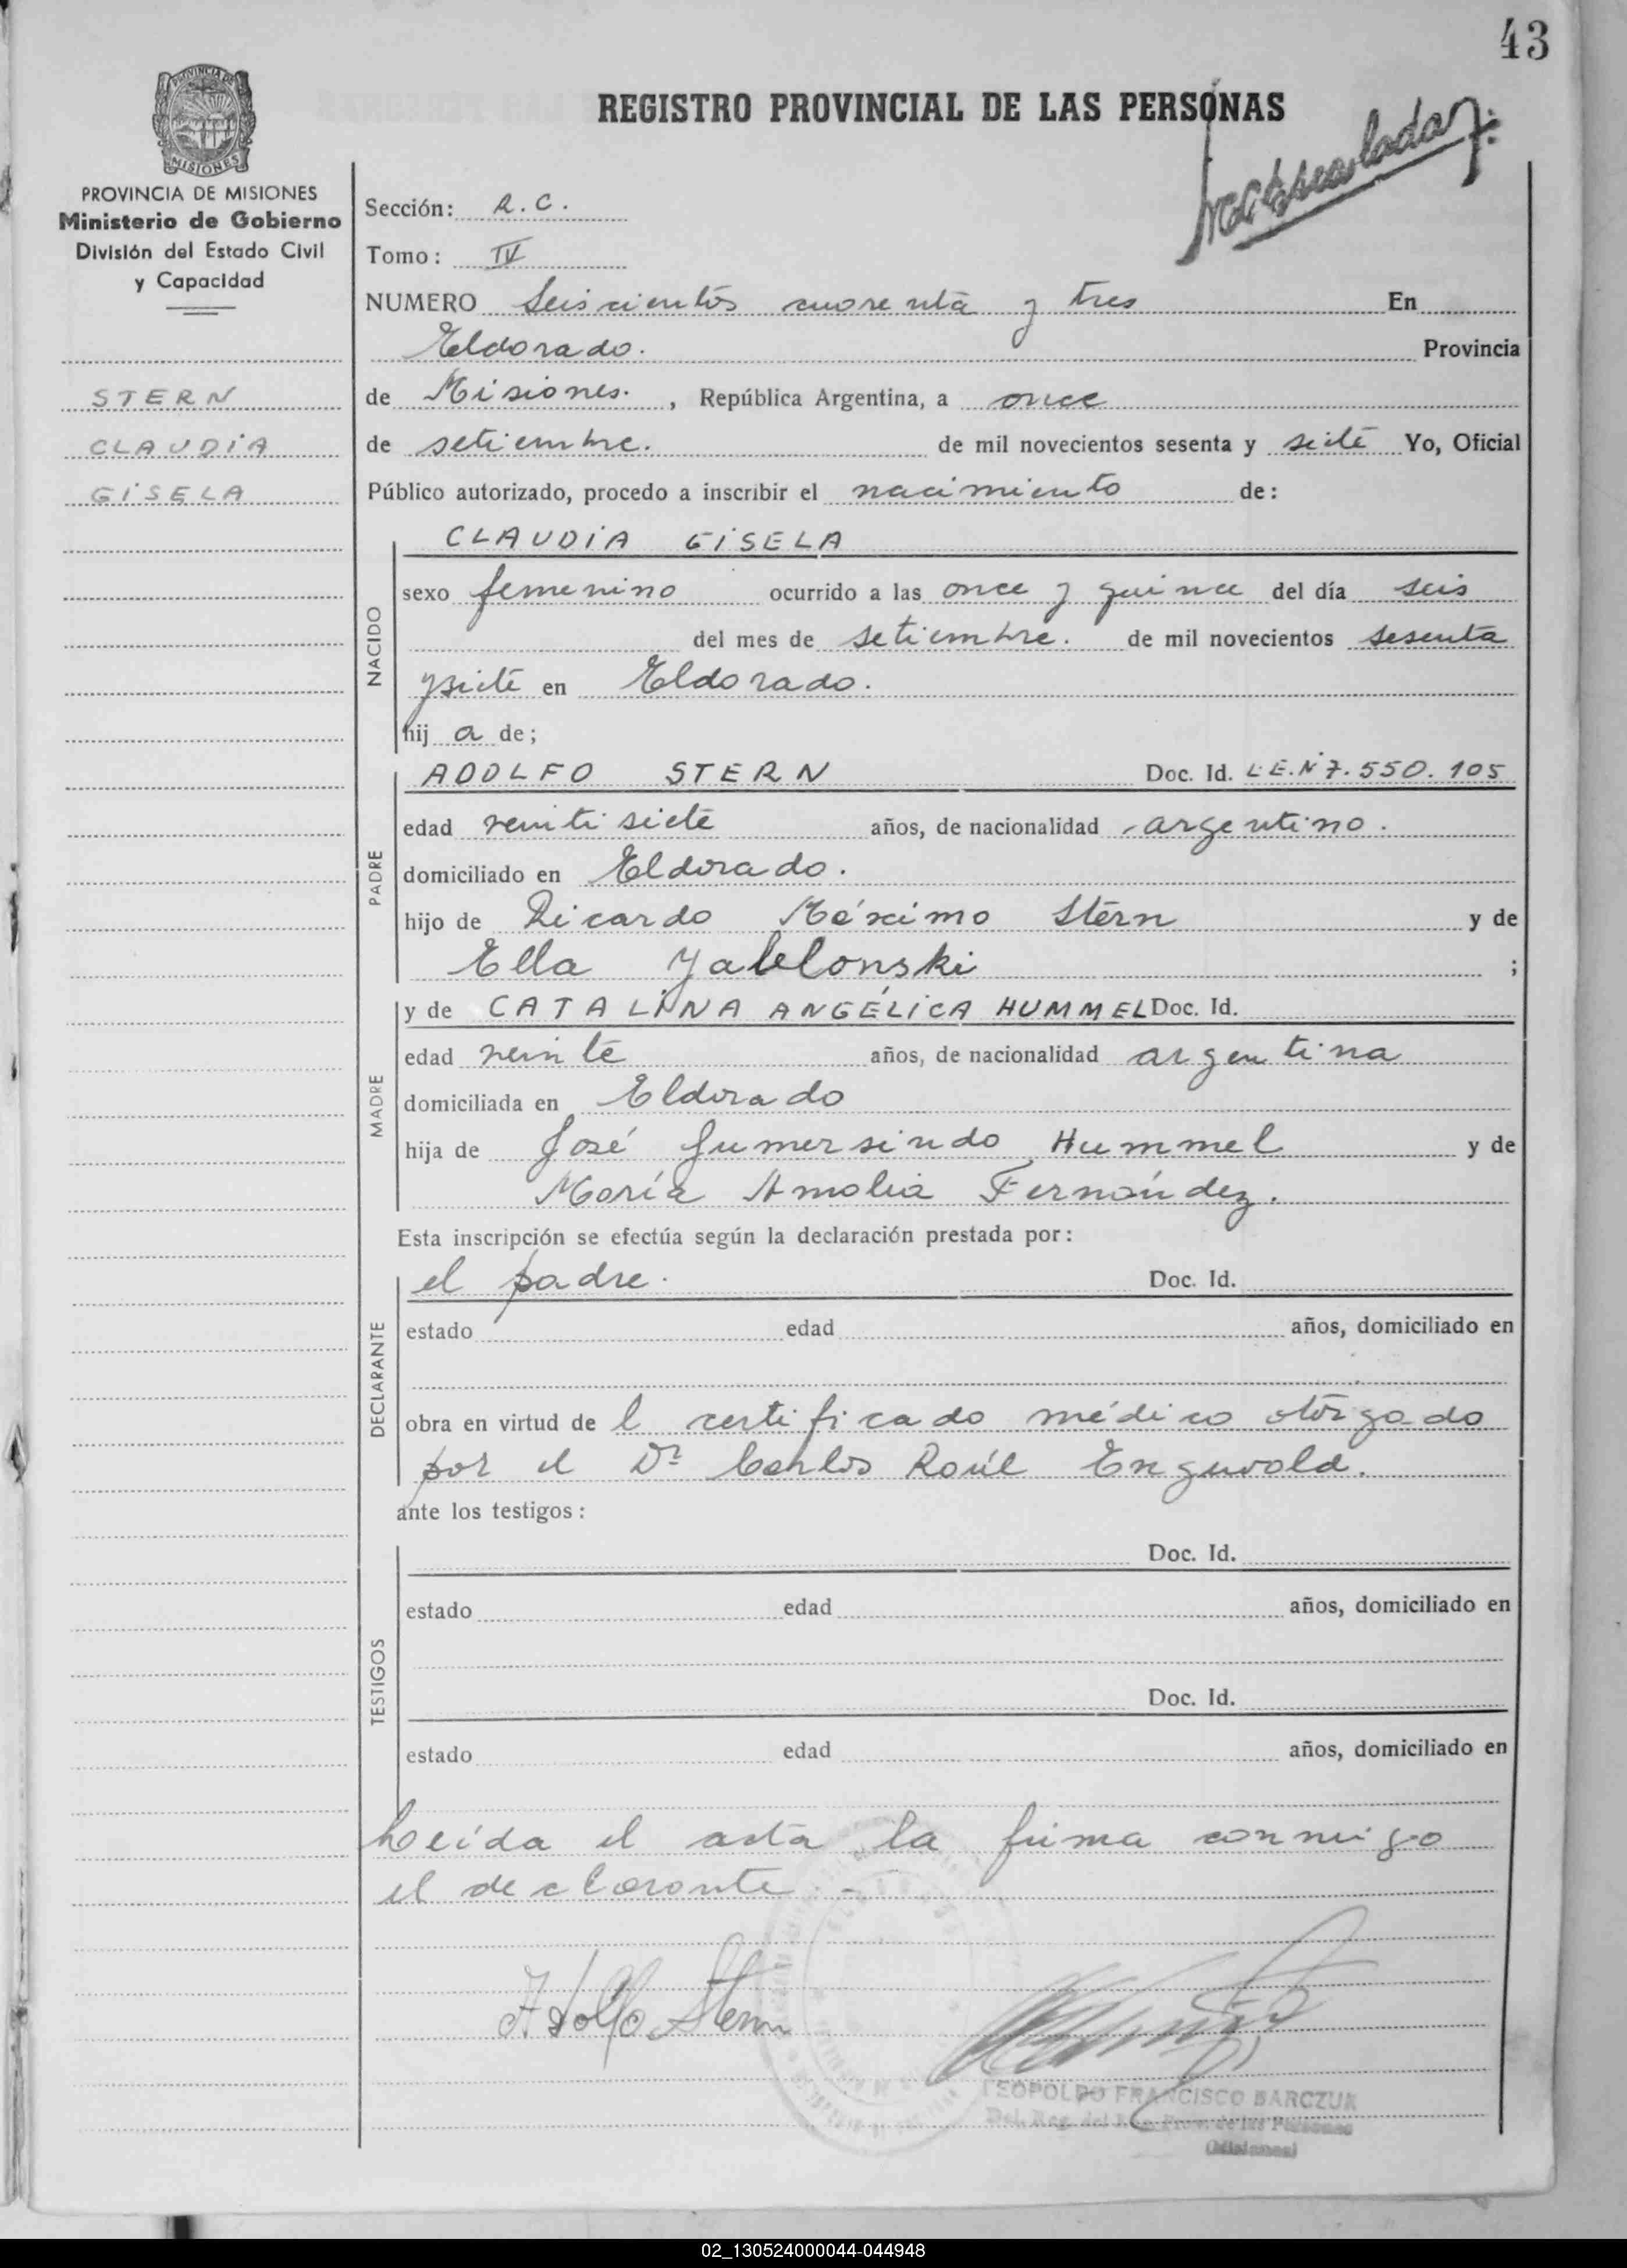 43
REGISTRO PROVINCIAL DE LAS PERSONAS
PROVINCIA DE MISIONES
MISIONES
PROVINCIA DE MISIONES
Ministerio de Gobierno
División del Estado Civil
y Capacidad
STERN
CLAUDIA
GISELA
Sección: R.C.
Tomo: IV
NUMERO Seiscientos cuarenta y tres En
Eldorado. Provincia
de Misiones. , República Argentina, a once
de setiembre. de mil novecientos sesenta y siete Yo, Oficial
Público autorizado, procedo a inscribir el nacimiento de:
NACIDO
CLAUDIA GISELA
sexo femenino ocurrido a las once y quince del día seis
del mes de setiembre. de mil novecientos sesenta
y siete en Eldorado.
hij a de;
PADRE
ADOLFO STERN Doc. Id. L.E.Nº 7.550.105
edad veinti siete años, de nacionalidad argentino.
domiciliado en Eldorado.
hijo de Ricardo Máximo Stern y de
Ella Yablonski ;
MADRE
y de CATALINA ANGÉLICA HUMMEL Doc. Id.
edad veinte años, de nacionalidad argentina
domiciliada en Eldorado
hija de José Gumersindo Hummel y de
María Amalia Fernández.
Esta inscripción se efectúa según la declaración prestada por:
DECLARANTE
el padre. Doc. Id.
estado edad años, domiciliado en
obra en virtud de l certificado médico otorgado
por el Dr. Carlos Raúl
ante los testigos:
TESTIGOS
Doc. Id.
estado edad años, domiciliado en
Doc. Id.
estado edad años, domiciliado en
Leída el acta la firma conmigo
el declarante. -
Adolfo Stern
LEOPOLDO FRANCISCO BARCZUK
Prov. de las Personas
(Misiones)
02_130524000044-044948